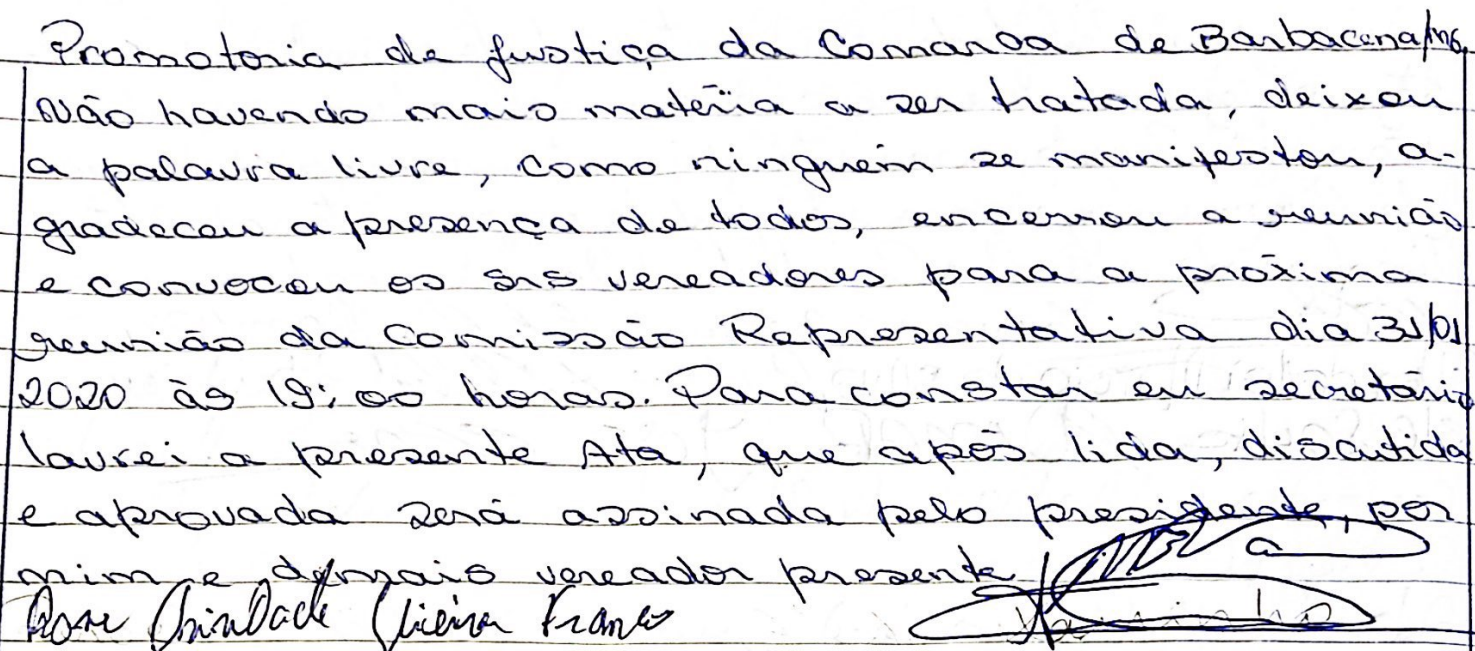 Promotoria de Justiça da Comarca de Barbacena/MG.
Não havendo mais matéria a ser tratada, deixou
a palavra livre, como ninguém se manifestou, a-
gradeceu a presença de todos, encerrou a reunião
e convocou os srs vereadores para a próxima
reunião da Comissão Representativa dia 31/01
2020 às 19:00 horas. Para constar eu secretário
lavrei a presente Ata, que após lida, discutida
e aprovada será assinada pelo presidente, por
mim e demais vereador presente
Trindade Vieira Franco